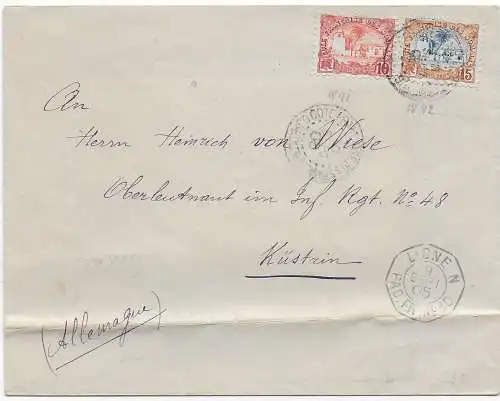 10 15
№41
№42
An
Herrn Heinrich von Wiese
Oberleutnant im Inf. Rgt. No 48
Küstrin
LIGNE N
PAQ. FR. No 10
(Allemagne)